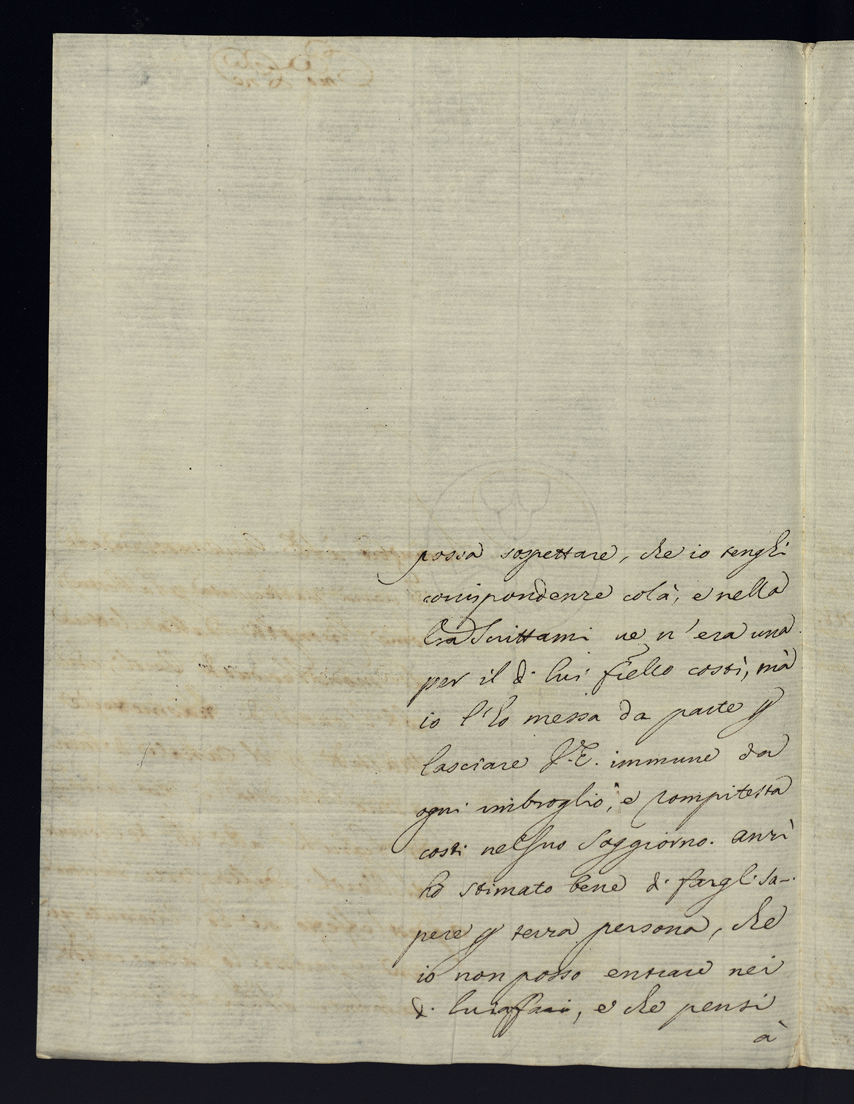 possa sospettare, che io tenghi
corrispondenze colà, e nella
Lra Scrittami ve n'era una
per il di lui frello costì, mà
io l'ho messa da parte p
lasciare V.E. immune da
ogni imbroglio, e rompitesta
costi nel suo Soggiorno. anzi
hò stimato bene di fargli sa-
pere p terza persona, che
io non posso entrare nei
di lui affari, e che pensi
à